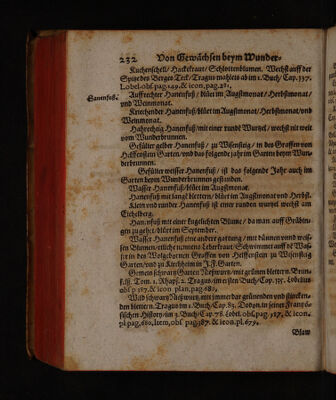 232 Von Gewächsen beym Wunder-
Kuchenschell/ Hackekraut/ Schlottenblumen. Wechst auff der
Spitze des Berges Teck/ Tragus mahlets ab im 1. Buch/ Cap. 137.
Lobel. obs. pag. 149. & icon. pag. 281.
Hanenfuß.
Auffrechter Hanenfuß/ blüet im Augstmonat/ Herbstmonat/
vnd Weinmonat.
Kriechender Hanenfuß/ blüet im Augstmonat/ Herbstmonat/ vnd
Weinmonat.
Hahrechtig Hanenfuß/ mit einer rundē Wurtzel/ wechst nit weit
vom Wunderbrunnen.
Gefülter gelber Hanenfuß/ zu Wisensteig/ in des Graffen von
Helffenstein Garten/ vnd das folgende jahr im Garten beym Wun-
derbrunnen.
Gefülter weisser Hanenfuß/ ist das folgende Jahr auch im
Garten beym Wunderbrunnen gestanden.
Wasser Hanenfuß/ blüet im Augstmonat.
Hanenfuß mit langē blettern/ blüet im Augstmonat vnd Herbst.
Klein vnd runder Hanenfuß/ mit einer runden wurtzel wechst am
Eichelberg.
Hanenfuß mit einer kugelichten Blume/ da man auff Gräbin-
gen zu gehet/ blüet im September.
Wasser Hanenfuß eine andere gattung/ mit dünnen vnnd weis-
sen Blumen/ etliche nennens Leberkraut: Schwimmet auff dē Was-
ser in des Wolgebornen Graffen von Helffenstein zu Wesensteig
Garten/ vnd zu Kirchheim in J. F. Garten.
Gemein schwartz Garten Nießwurtz/ mit grünen blettern. Brun-
fels. Tom. 1. Rhaps. 2. Tragus/ im ersten Buch/ Cap. 135. Lobelius
obs. p. 387. & icon. plan. pag. 681.
Wild schwartz Nießwurtz, mit immer dar grünenden vnd stincken-
den blettern. Tragus im 1. Buch/ Cap. 85. Dodon. in seiner Frantzö-
sischen History/ im 3. Buch/ Cap. 78. Lobel. obs. pag. 387. & icon.
pl. pag. 680. Item, obs. pag. 387. & icon. pl. 679.
Blaw